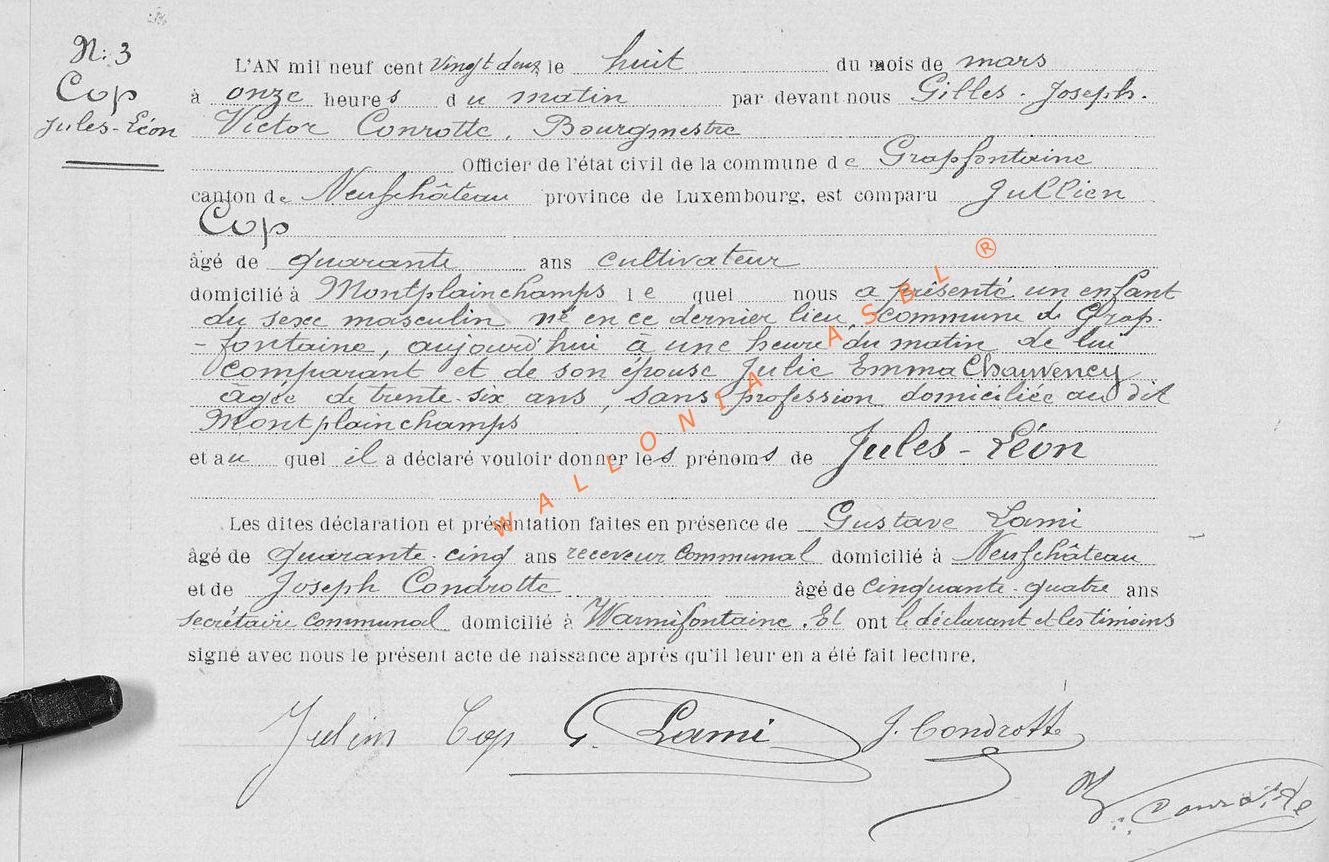 N: 3
Cop
Jules-Léon
L'AN mil neuf cent vingt deux le huit du mois de mars
à onze heures du matin par devant nous Gilles-Joseph-
Victor Conrotte, Bourgmestre
Officier de l'état civil de la commune de Grapfontaine
canton de Neufchâteau province de Luxembourg, est comparu Jullien
Cop
âgé de quarante ans cultivateur
domicilié à Montplainchamps le quel nous a présenté un enfant
du sexe masculin né en ce dernier lieu, commune de Grap-
-fontaine, aujourd'hui à une heure du matin de lui
comparant et de son épouse Julie Emma Chauvency
âgée de trente-six ans, sans profession domiciliée au dit
Montplainchamps
et au quel il a déclaré vouloir donner les prénoms de Jules-Léon
Les dites déclaration et présentation faites en présence de Gustave Lami
âgé de quarante-cinq ans receveur communal domicilié à Neufchâteau
et de Joseph Condrotte âgé de cinquante-quatre ans
secrétaire communal domicilié à Warmifontaine. Et ont le déclarant et les témoins
signé avec nous le présent acte de naissance après qu'il leur en a été fait lecture.
Julien Cop G. Lami J. Condrotte
V. Conrotte
WALLONIA ASBL ®